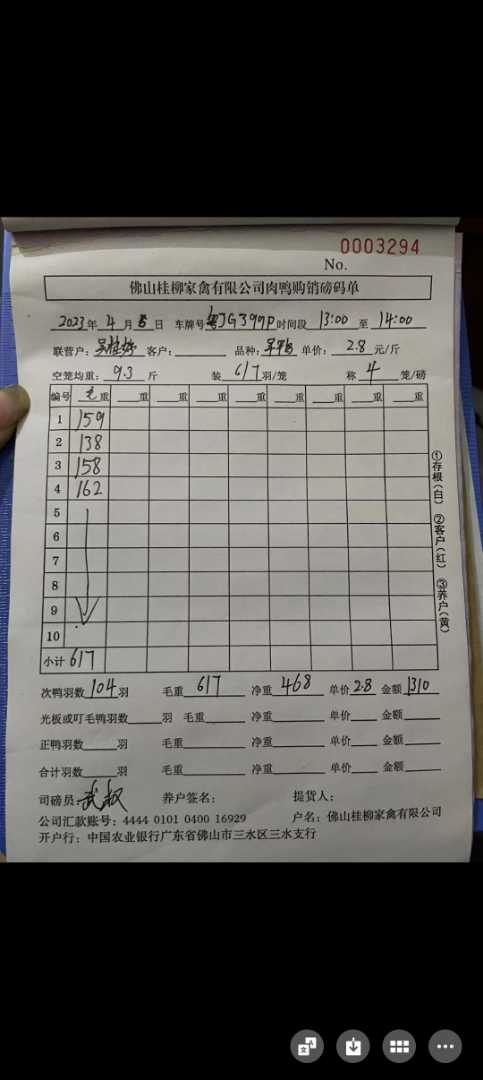 0003294
No.
佛山桂柳家禽有限公司肉鸭购销磅码单
2023年 4 月 5 日 车牌号粤JG397P时间段 13:00 至 14:00
联营户: 客户: 品种: 单价: 2.8 元/斤
空笼均重: 9.3 斤 装 6/7 羽/笼 称 4 笼/磅
编号 毛重 重 重 重 重 重 重 重 重
1 159
2 138
3 158
4 162
5
6
7
8
9
10
小计 617
次鸭羽数 104 羽 毛重 617 净重 468 单价 2.8 金额 1310
光板或叮毛鸭羽数 羽 毛重 净重 单价 金额
正鸭羽数 羽 毛重 净重 单价 金额
合计羽数 羽 毛重 净重 单价 金额
司磅员 养户签名: 提货人:
公司汇款账号: 4444 0101 0400 16929 户名: 佛山桂柳家禽有限公司
开户行: 中国农业银行广东省佛山市三水区三水支行
①存根(白) ②客户(红) ③养户(黄)